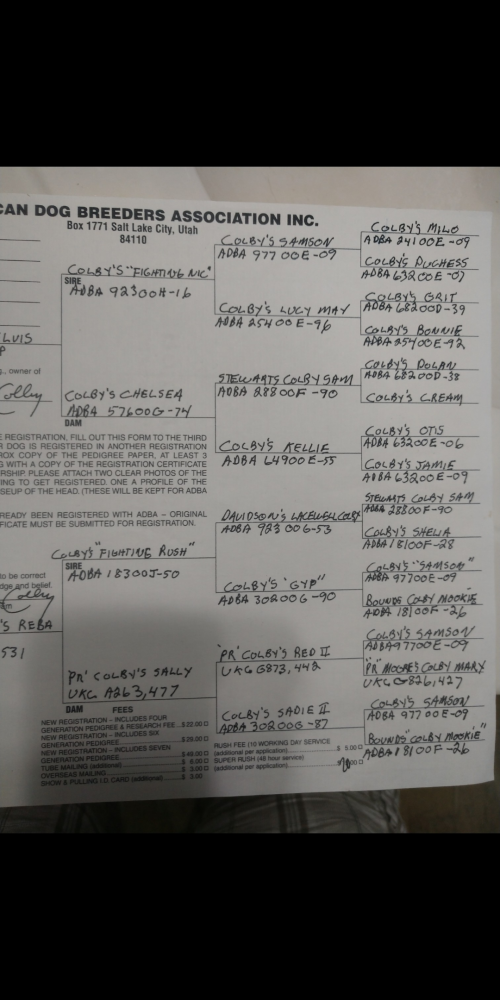 CAN DOG BREEDERS ASSOCIATION INC.
Box 1771 Salt Lake City, Utah
84110
COLBY'S "FIGHTING NIC"
SIRE
ADBA 92300H-16
COLBY'S SAMSON
ADBA 97700E-09
COLBY'S MILO
ADBA 24100E-09
COLBY'S DUCHESS
ADBA 63200E-07
COLBY'S LUCY MAY
ADBA 25400E-96
COLBY'S GRIT
ADBA 68200D-39
COLBY'S BONNIE
ADBA 25400E-92
LUIS
P
g., owner of
Colby
COLBY'S CHELSEA
ADBA 57600G-74
DAM
STEWARTS COLBY SAM
ADBA 28800F-90
COLBY'S DOLAN
ADBA 68200D-38
COLBY'S CREAM
COLBY'S KELLIE
ADBA 64900E-55
COLBY'S OTIS
ADBA 63200E-06
COLBY'S JAMIE
ADBA 63200E-09
E REGISTRATION, FILL OUT THIS FORM TO THE THIRD
DOG IS REGISTERED IN ANOTHER REGISTRATION
ROX COPY OF THE PEDIGREE PAPER, AT LEAST 3
G WITH A COPY OF THE REGISTRATION CERTIFICATE
RSHIP. PLEASE ATTACH TWO CLEAR PHOTOS OF THE
ING TO GET REGISTERED. ONE A PROFILE OF THE
SEUP OF THE HEAD. (THESE WILL BE KEPT FOR ADBA
READY BEEN REGISTERED WITH ADBA – ORIGINAL
FICATE MUST BE SUBMITTED FOR REGISTRATION.
COLBY'S "FIGHTING RUSH"
SIRE
ADBA 18300J-50
DAVIDSON'S LACEWELL COLBY
ADBA 92300G-53
STEWARTS COLBY SAM
ADBA 28800F-90
COLBY'S SHELIA
ADBA 18100F-28
COLBY'S "GYP"
ADBA 30200G-90
COLBY'S "SAMSON"
ADBA 97700E-09
BOUNDS COLBY MOOKIE
ADBA 18100F-26
to be correct
dge and belief.
Colby
am
'S REBA
531
PR' COLBY'S SALLY
UKC A263,477
DAM
'PR' COLBY'S RED II
UKC G873,442
COLBY'S SAMSON
ADBA 97700E-09
"PR" MOORE'S COLBY MARY
UKC G826,427
COLBY'S SADIE II
ADBA 30200G-87
COLBY'S SAMSON
ADBA 97700E-09
BOUNDS' COLBY MOOKIE"
ADBA 18100F-26
FEES
NEW REGISTRATION – INCLUDES FOUR
GENERATION PEDIGREE & RESEARCH FEE ...$22.00
NEW REGISTRATION – INCLUDES SIX
GENERATION PEDIGREE ... $29.00
NEW REGISTRATION – INCLUDES SEVEN
GENERATION PEDIGREE ... $49.00
TUBE MAILING (additional) ... $ 6.00
OVERSEAS MAILING ... $ 3.00
SHOW & PULLING I.D. CARD (additional) ... $ 3.00
RUSH FEE (10 WORKING DAY SERVICE
(additional per application) ... $ 5.00
SUPER RUSH (48 hour service)
(additional per application)